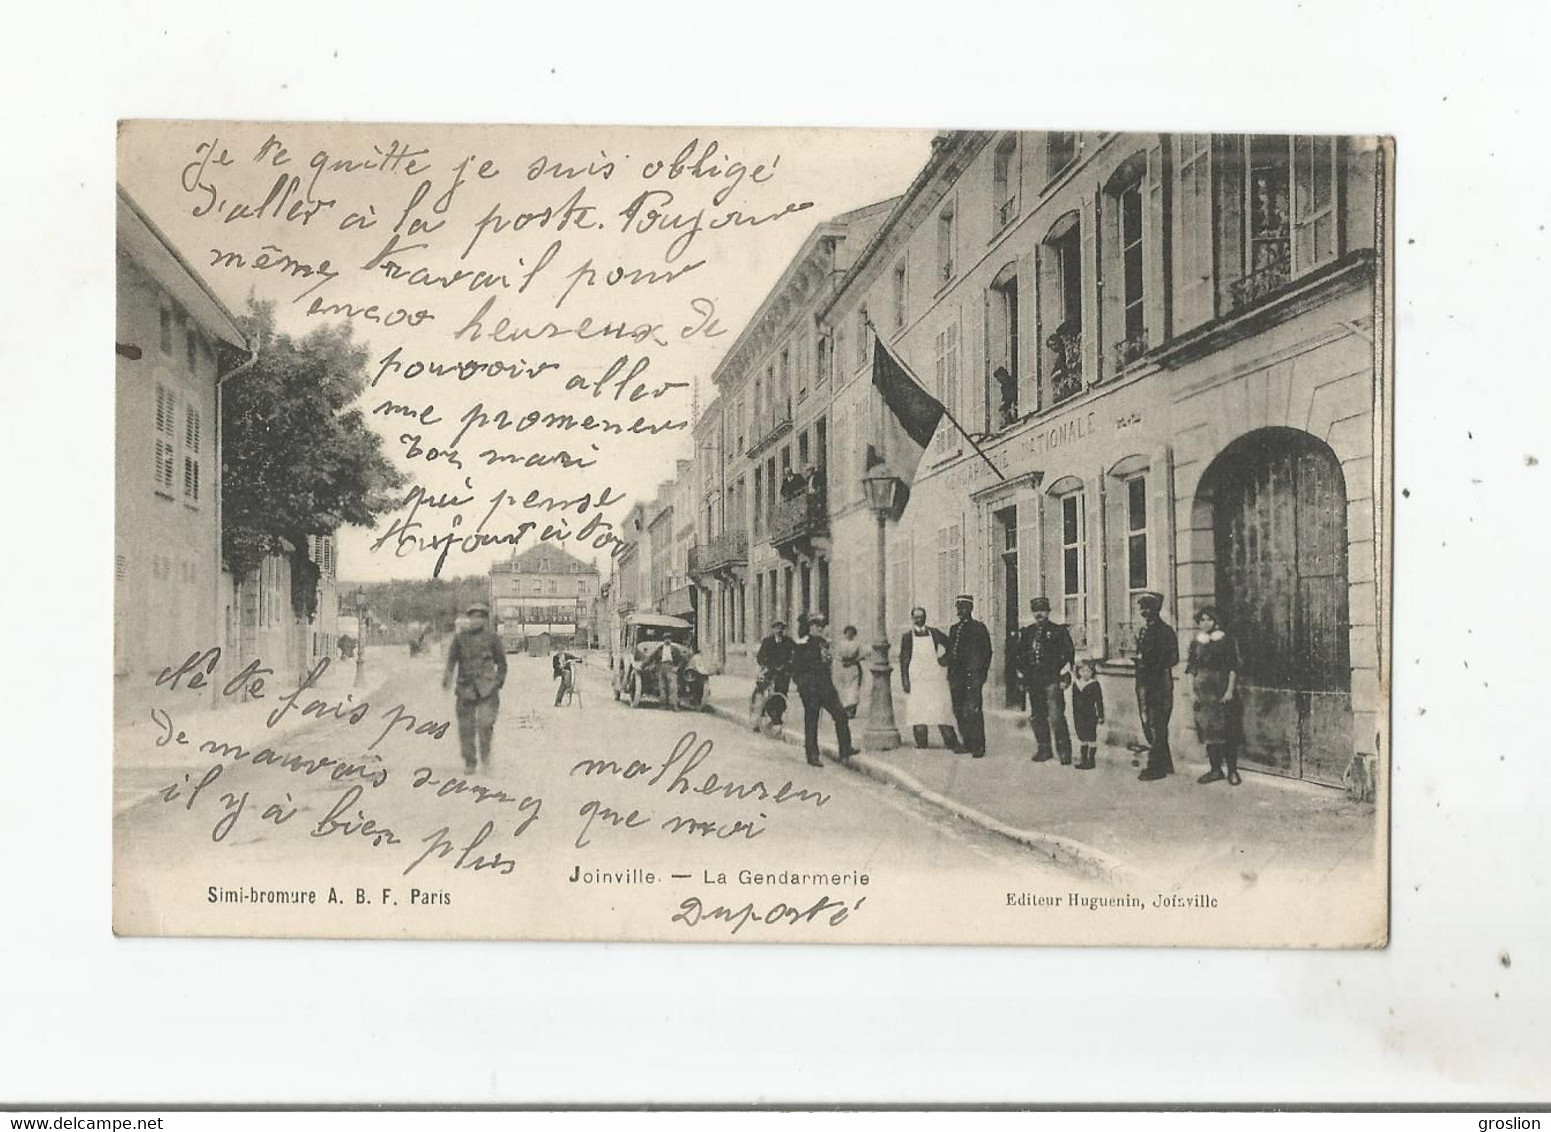 Je te quitte je suis obligé
d'aller à la poste. Toujours
même travail pour
encor heureux de
pouvoir aller
me promener
Ton mari
qui pense
toujour à toi
GENDARMERIE NATIONALE
Ne te fais pas
de mauvais sang
il y à bien plus
malheureu
que moi
Joinville. — La Gendarmerie
Simi-bromure A. B. F. Paris
Editeur Huguenin, Joinville
Duporté
groslion